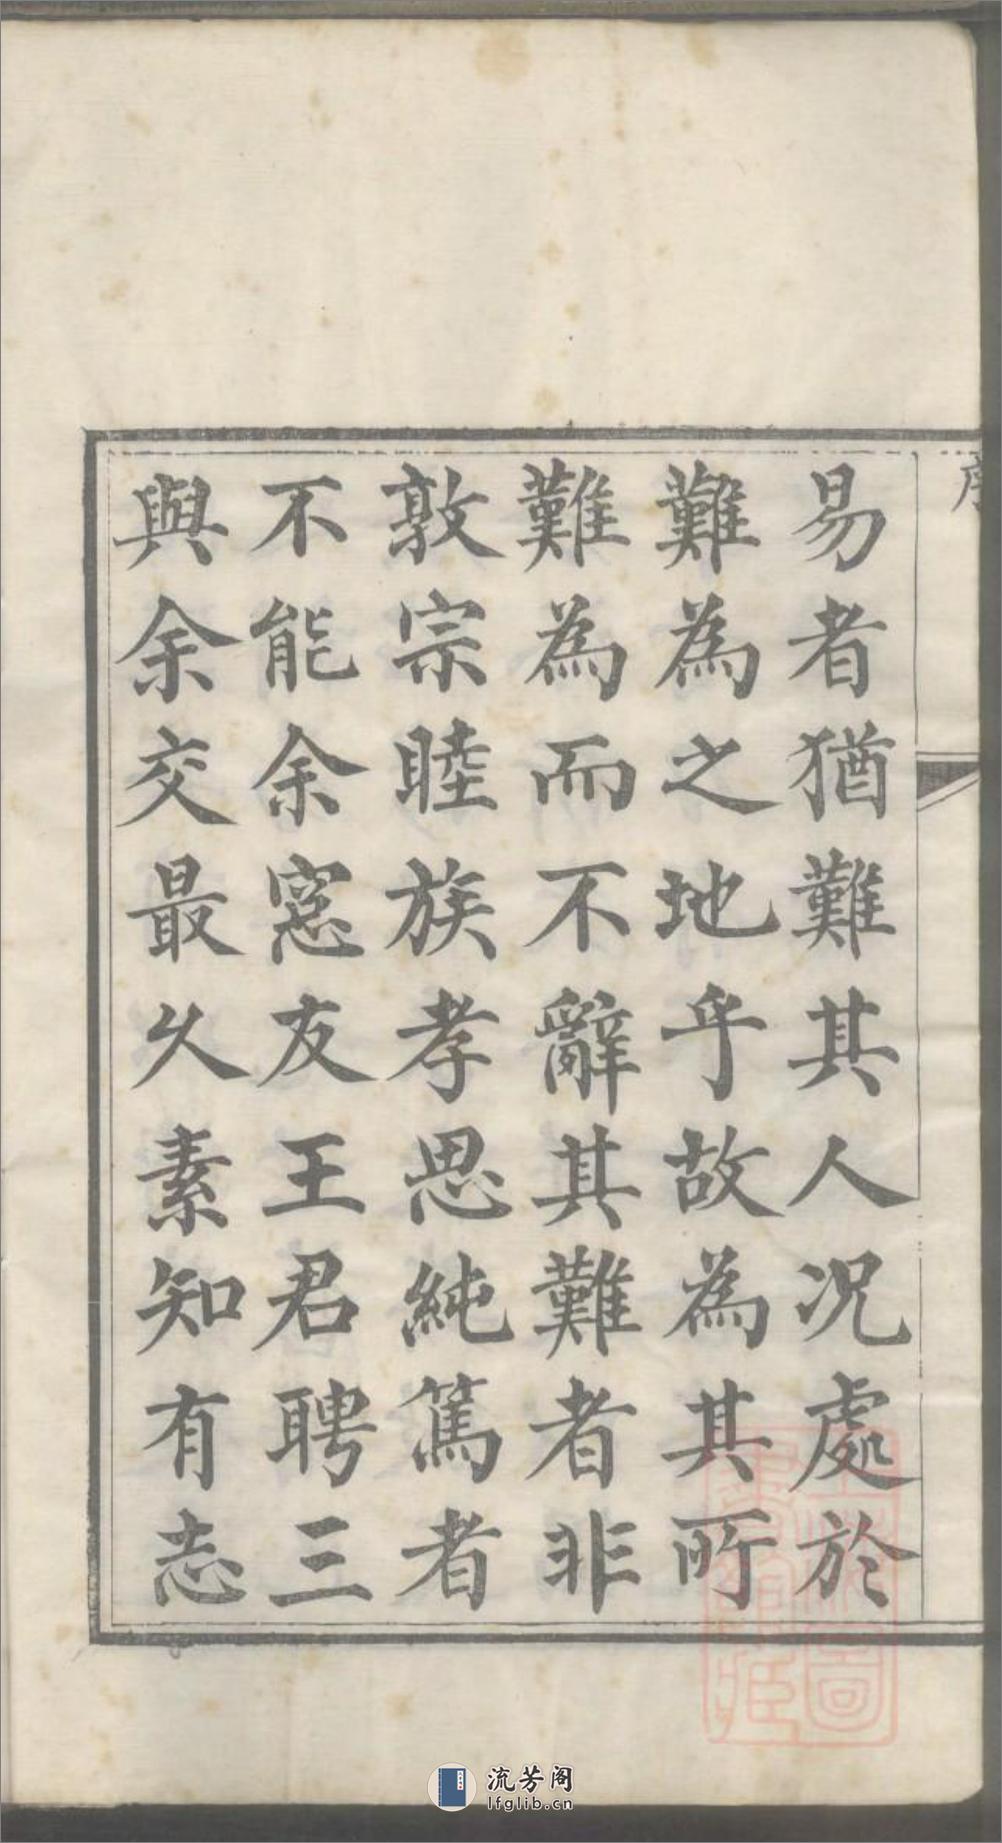 易者猶難其人況處於
難為之地乎故為其所
難為而不辭其難者非
敦宗睦族孝思純篤者
不能余窓友王君聘三
與余交最久素知有志
流芳阁
lfglib.cn